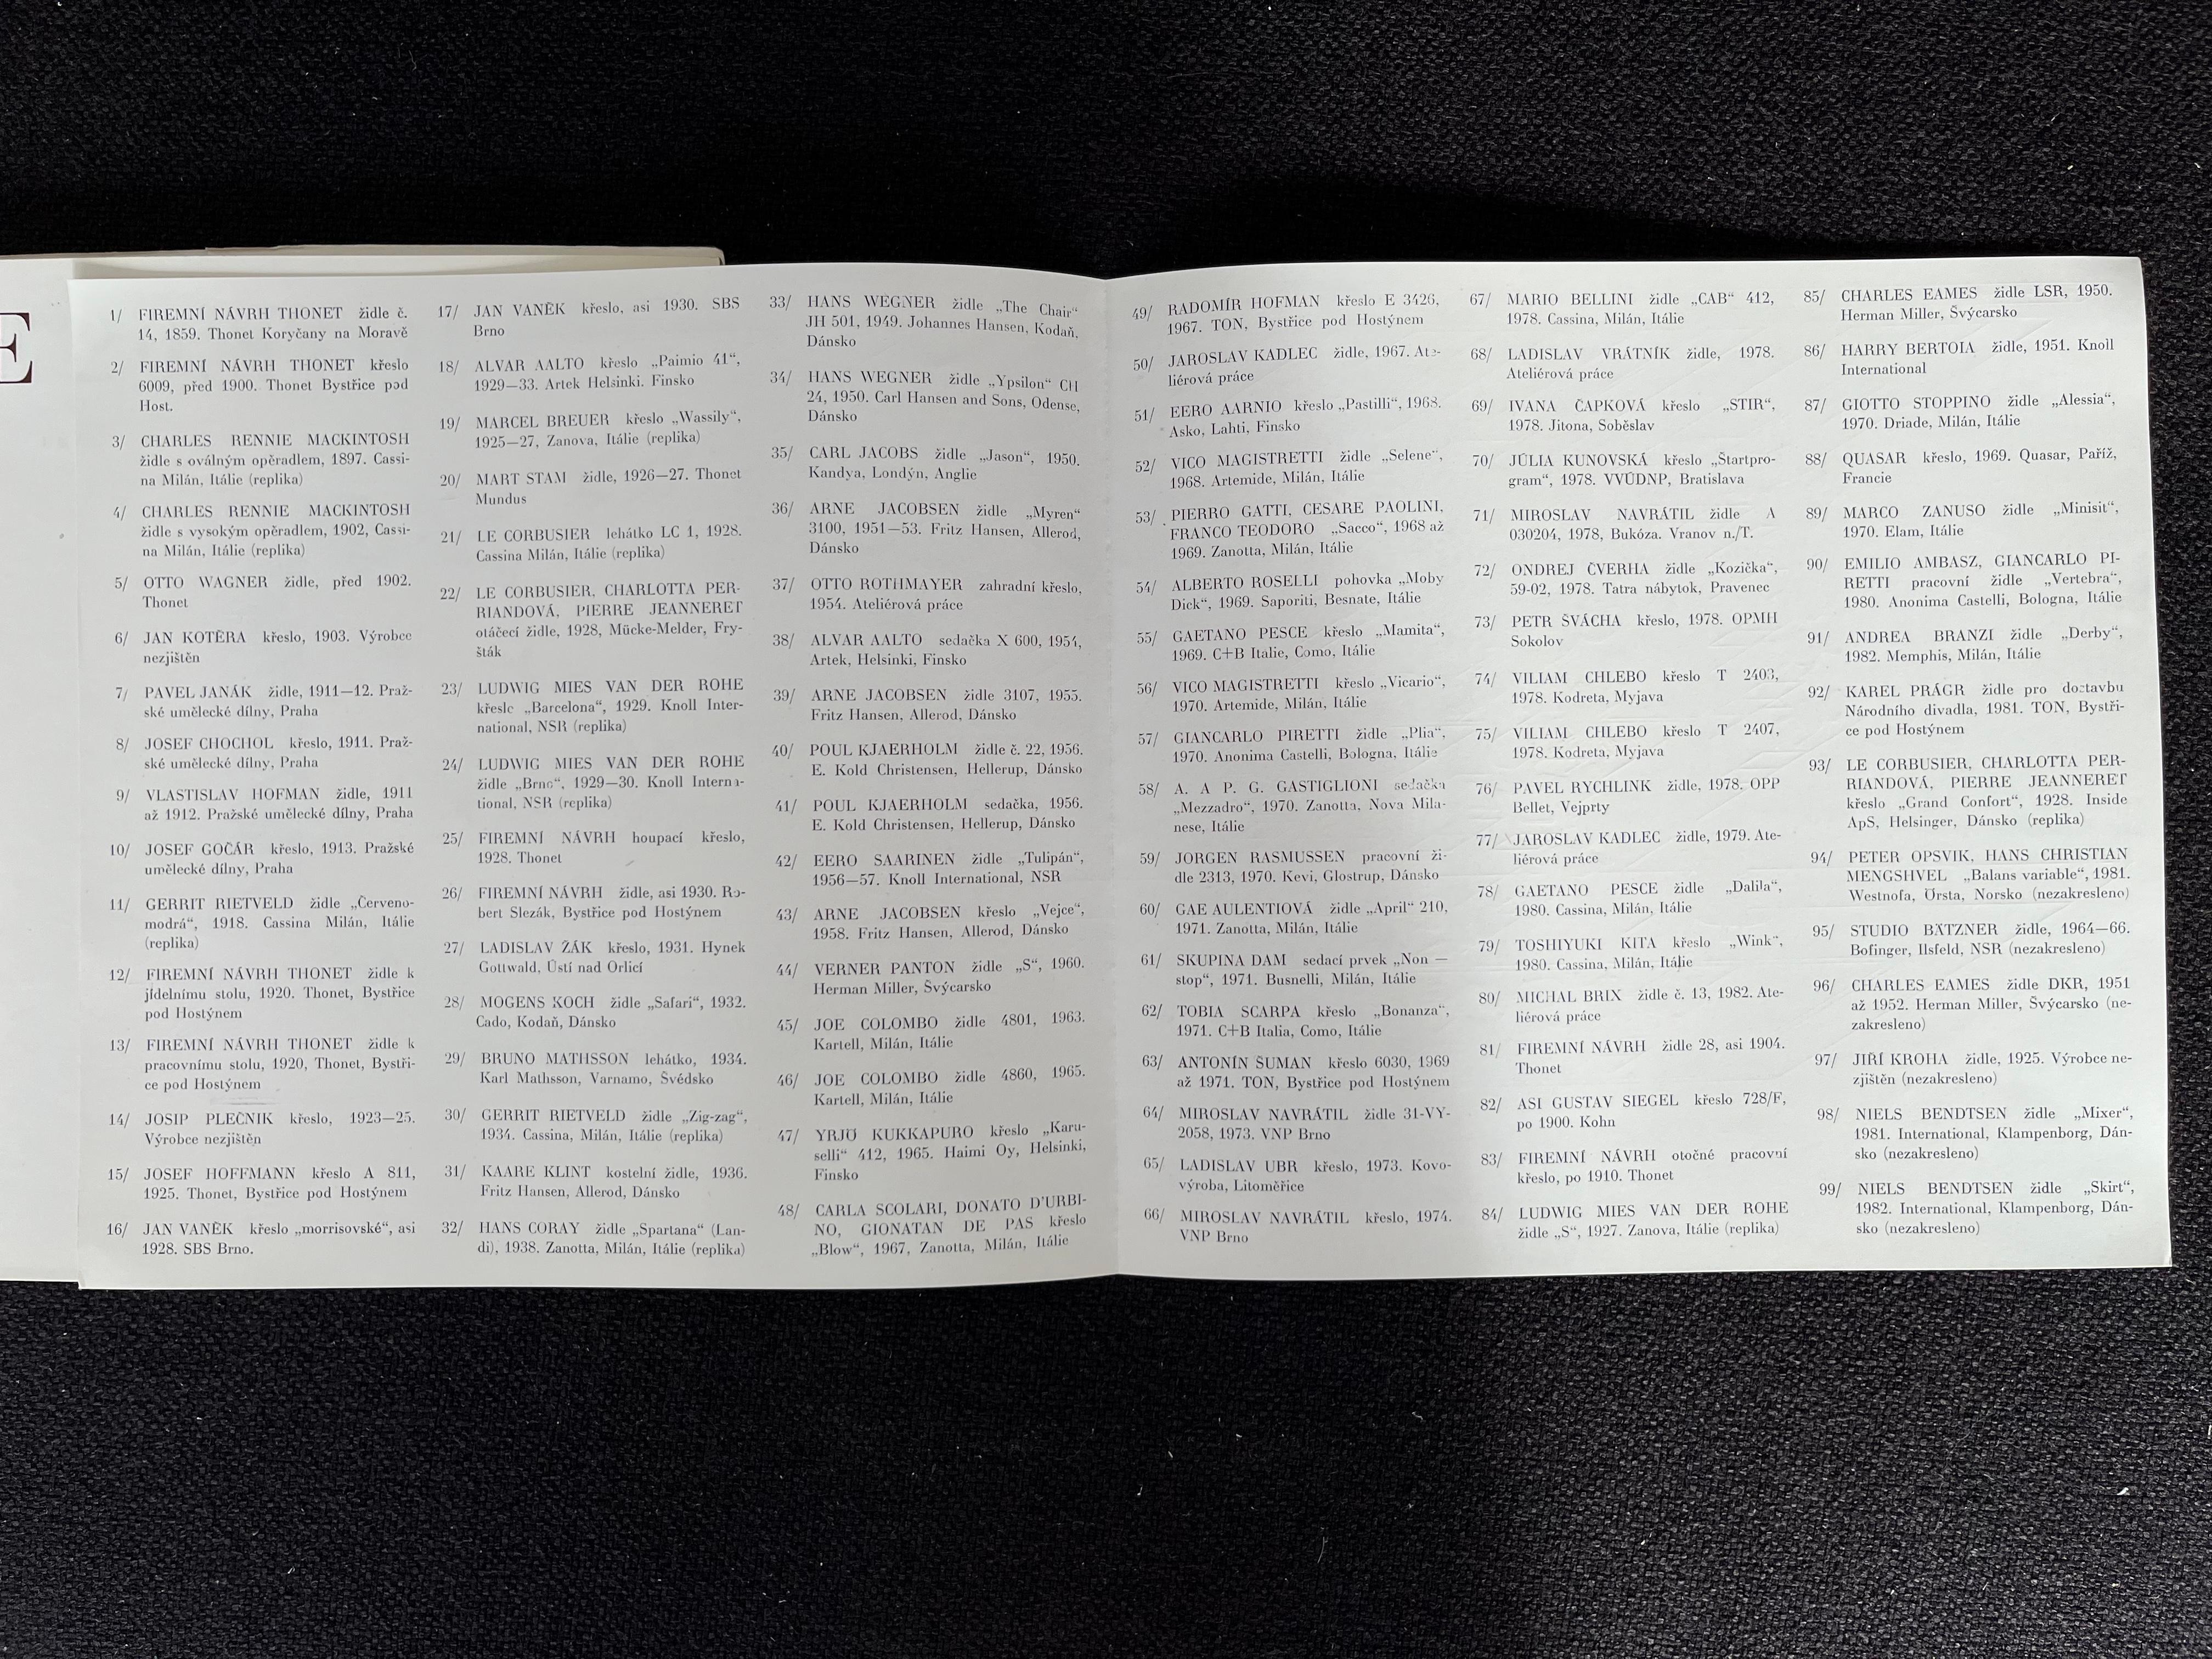 E
1/ FIREMNÍ NÁVRH THONET židle č.
14, 1859. Thonet Koryčany na Moravě
2/ FIREMNÍ NÁVRH THONET křeslo
6009, před 1900. Thonet Bystřice pod
Host.
3/ CHARLES RENNIE MACKINTOSH
židle s oválným opěradlem, 1897. Cassi-
na Milán, Itálie (replika)
4/ CHARLES RENNIE MACKINTOSH
židle s vysokým opěradlem, 1902, Cassi-
na Milán, Itálie (replika)
5/ OTTO WAGNER židle, před 1902.
Thonet
6/ JAN KOTĚRA křeslo, 1903. Výrobce
nezjištěn
7/ PAVEL JANÁK židle, 1911—12. Praž-
ské umělecké dílny, Praha
8/ JOSEF CHOCHOL křeslo, 1911. Praž-
ské umělecké dílny, Praha
9/ VLASTISLAV HOFMAN židle, 1911
až 1912. Pražské umělecké dílny, Praha
10/ JOSEF GOČÁR křeslo, 1913. Pražské
umělecké dílny, Praha
11/ GERRIT RIETVELD židle „Červeno-
modrá“, 1918. Cassina Milán, Itálie
(replika)
12/ FIREMNÍ NÁVRH THONET židle k
jídelnímu stolu, 1920. Thonet, Bystřice
pod Hostýnem
13/ FIREMNÍ NÁVRH THONET židle k
pracovnímu stolu, 1920, Thonet, Bystři-
ce pod Hostýnem
14/ JOSIP PLEČNIK křeslo, 1923—25.
Výrobce nezjištěn
15/ JOSEF HOFFMANN křeslo A 811,
1925. Thonet, Bystřice pod Hostýnem
16/ JAN VANĚK křeslo „morrisovské“, asi
1928. SBS Brno.
17/ JAN VANĚK křeslo, asi 1930. SBS
Brno
18/ ALVAR AALTO křeslo „Paimio 41“,
1929—33. Artek Helsinki. Finsko
19/ MARCEL BREUER křeslo „Wassily“,
1925—27, Zanova, Itálie (replika)
20/ MART STAM židle, 1926—27. Thonet
Mundus
21/ LE CORBUSIER lehátko LC 1, 1928.
Cassina Milán, Itálie (replika)
22/ LE CORBUSIER, CHARLOTTA PER-
RIANDOVÁ, PIERRE JEANNERET
otáčecí židle, 1928, Mücke-Melder, Fry-
šták
23/ LUDWIG MIES VAN DER ROHE
křeslo „Barcelona“, 1929. Knoll Inter-
national, NSR (replika)
24/ LUDWIG MIES VAN DER ROHE
židle „Brno“, 1929—30. Knoll Interna-
tional, NSR (replika)
25/ FIREMNÍ NÁVRH houpací křeslo,
1928. Thonet
26/ FIREMNÍ NÁVRH židle, asi 1930. Ro-
bert Slezák, Bystřice pod Hostýnem
27/ LADISLAV ŽÁK křeslo, 1931. Hynek
Gottwald, Ústí nad Orlicí
28/ MOGENS KOCH židle „Safari“, 1932.
Cado, Kodaň, Dánsko
29/ BRUNO MATHSSON lehátko, 1934.
Karl Mathsson, Varnamo, Švédsko
30/ GERRIT RIETVELD židle „Zig-zag“,
1934. Cassina, Milán, Itálie (replika)
31/ KAARE KLINT kostelní židle, 1936.
Fritz Hansen, Allerod, Dánsko
32/ HANS CORAY židle „Spartana“ (Lan-
di), 1938. Zanotta, Milán, Itálie (replika)
33/ HANS WEGNER židle „The Chair“
JH 501, 1949. Johannes Hansen, Kodaň,
Dánsko
34/ HANS WEGNER židle „Ypsilon“ CH
24, 1950. Carl Hansen and Sons, Odense,
Dánsko
35/ CARL JACOBS židle „Jason“, 1950.
Kandya, Londýn, Anglie
36/ ARNE JACOBSEN židle „Myren“
3100, 1951—53. Fritz Hansen, Allerod,
Dánsko
37/ OTTO ROTHMAYER zahradní křeslo,
1954. Ateliérová práce
38/ ALVAR AALTO sedačka X 600, 1954,
Artek, Helsinki, Finsko
39/ ARNE JACOBSEN židle 3107, 1955.
Fritz Hansen, Allerod, Dánsko
40/ POUL KJAERHOLM židle č. 22, 1956.
E. Kold Christensen, Hellerup, Dánsko
41/ POUL KJAERHOLM sedačka, 1956.
E. Kold Christensen, Hellerup, Dánsko
42/ EERO SAARINEN židle „Tulipán“,
1956—57. Knoll International, NSR
43/ ARNE JACOBSEN křeslo „Vejce“,
1958. Fritz Hansen, Allerod, Dánsko
44/ VERNER PANTON židle „S“, 1960.
Herman Miller, Švýcarsko
45/ JOE COLOMBO židle 4801, 1963.
Kartell, Milán, Itálie
46/ JOE COLOMBO židle 4860, 1965.
Kartell, Milán, Itálie
47/ YRJÖ KUKKAPURO křeslo „Karu-
selli“ 412, 1965. Haimi Oy, Helsinki,
Finsko
48/ CARLA SCOLARI, DONATO D'URBI-
NO, GIONATAN DE PAS křeslo
„Blow“, 1967, Zanotta, Milán, Itálie
49/ RADOMÍR HOFMAN křeslo E 3426,
1967. TON, Bystřice pod Hostýnem
50/ JAROSLAV KADLEC židle, 1967. Ate-
liérová práce
51/ EERO AARNIO křeslo „Pastilli“, 1968.
Asko, Lahti, Finsko
52/ VICO MAGISTRETTI židle „Selene“,
1968. Artemide, Milán, Itálie
53/ PIERRO GATTI, CESARE PAOLINI,
FRANCO TEODORO „Sacco“, 1968 až
1969. Zanotta, Milán, Itálie
54/ ALBERTO ROSELLI pohovka „Moby
Dick“, 1969. Saporiti, Besnate, Itálie
55/ GAETANO PESCE křeslo „Mamita“,
1969. C+B Italie, Como, Itálie
56/ VICO MAGISTRETTI křeslo „Vicario“,
1970. Artemide, Milán, Itálie
57/ GIANCARLO PIRETTI židle „Plia“,
1970. Anonima Castelli, Bologna, Itálie
58/ A. A P. G. GASTIGLIONI sedačka
„Mezzadro“, 1970. Zanotta, Nova Mila-
nese, Itálie
59/ JORGEN RASMUSSEN pracovní ži-
dle 2313, 1970. Kevi, Glostrup, Dánsko
60/ GAE AULENTIOVÁ židle „April“ 210,
1971. Zanotta, Milán, Itálie
61/ SKUPINA DAM sedací prvek „Non —
stop“, 1971. Busnelli, Milán, Itálie
62/ TOBIA SCARPA křeslo „Bonanza“,
1971. C+B Italia, Como, Itálie
63/ ANTONÍN ŠUMAN křeslo 6030, 1969
až 1971. TON, Bystřice pod Hostýnem
64/ MIROSLAV NAVRÁTIL židle 31-VY-
2058, 1973. VNP Brno
65/ LADISLAV UBR křeslo, 1973. Kovo-
výroba, Litoměřice
66/ MIROSLAV NAVRÁTIL křeslo, 1974.
VNP Brno
67/ MARIO BELLINI židle „CAB“ 412,
1978. Cassina, Milán, Itálie
68/ LADISLAV VRÁTNÍK židle, 1978.
Ateliérová práce
69/ IVANA ČAPKOVÁ křeslo „STIR“,
1978. Jitona, Soběslav
70/ JÚLIA KUNOVSKÁ křeslo „Štartpro-
gram“, 1978. VVÚDNP, Bratislava
71/ MIROSLAV NAVRÁTIL židle A
030204, 1978, Bukóza. Vranov n./T.
72/ ONDREJ ČVERHA židle „Kozička“,
59-02, 1978. Tatra nábytok, Pravenec
73/ PETR ŠVÁCHA křeslo, 1978. OPMH
Sokolov
74/ VILIAM CHLEBO křeslo T 2403,
1978. Kodreta, Myjava
75/ VILIAM CHLEBO křeslo T 2407,
1978. Kodreta, Myjava
76/ PAVEL RYCHLINK židle, 1978. OPP
Bellet, Vejprty
77/ JAROSLAV KADLEC židle, 1979. Ate-
liérová práce
78/ GAETANO PESCE židle „Dalila“,
1980. Cassina, Milán, Itálie
79/ TOSHIYUKI KITA křeslo „Wink“,
1980. Cassina, Milán, Itálie
80/ MICHAL BRIX židle č. 13, 1982. Ate-
liérová práce
81/ FIREMNÍ NÁVRH židle 28, asi 1904.
Thonet
82/ ASI GUSTAV SIEGEL křeslo 728/F,
po 1900. Kohn
83/ FIREMNÍ NÁVRH otočné pracovní
křeslo, po 1910. Thonet
84/ LUDWIG MIES VAN DER ROHE
židle „S“, 1927. Zanova, Itálie (replika)
85/ CHARLES EAMES židle LSR, 1950.
Herman Miller, Švýcarsko
86/ HARRY BERTOIA židle, 1951. Knoll
International
87/ GIOTTO STOPPINO židle „Alessia“,
1970. Driade, Milán, Itálie
88/ QUASAR křeslo, 1969. Quasar, Paříž,
Francie
89/ MARCO ZANUSO židle „Minisit“,
1970. Elam, Itálie
90/ EMILIO AMBASZ, GIANCARLO PI-
RETTI pracovní židle „Vertebra“,
1980. Anonima Castelli, Bologna, Itálie
91/ ANDREA BRANZI židle „Derby“,
1982. Memphis, Milán, Itálie
92/ KAREL PRÁGR židle pro dostavbu
Národního divadla, 1981. TON, Bystři-
ce pod Hostýnem
93/ LE CORBUSIER, CHARLOTTA PER-
RIANDOVÁ, PIERRE JEANNERET
křeslo „Grand Confort“, 1928. Inside
ApS, Helsinger, Dánsko (replika)
94/ PETER OPSVIK, HANS CHRISTIAN
MENGSHVEL „Balans variable“, 1981.
Westnofa, Örsta, Norsko (nezakresleno)
95/ STUDIO BÄTZNER židle, 1964—66.
Bofinger, Ilsfeld, NSR (nezakresleno)
96/ CHARLES EAMES židle DKR, 1951
až 1952. Herman Miller, Švýcarsko (ne-
zakresleno)
97/ JIŘÍ KROHA židle, 1925. Výrobce ne-
zjištěn (nezakresleno)
98/ NIELS BENDTSEN židle „Mixer“,
1981. International, Klampenborg, Dán-
sko (nezakresleno)
99/ NIELS BENDTSEN židle „Skirt“,
1982. International, Klampenborg, Dán-
sko (nezakresleno)